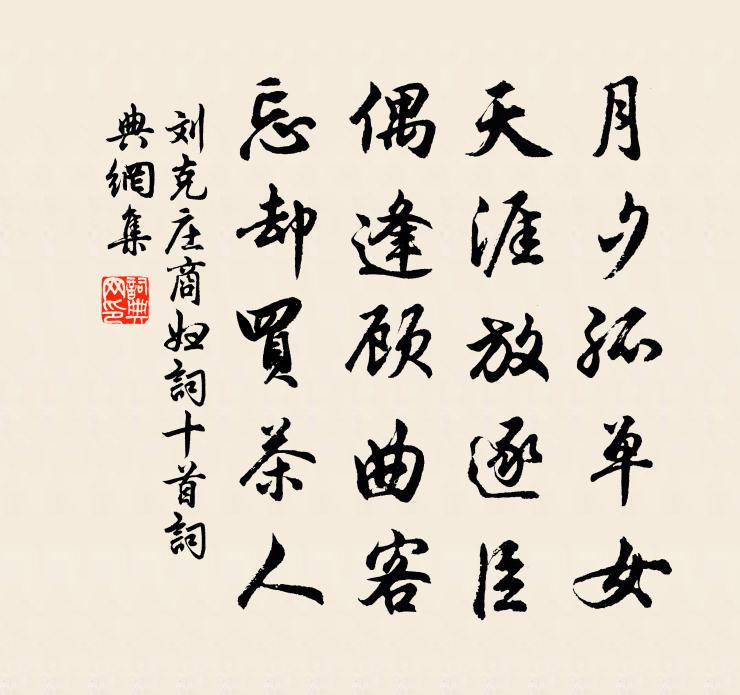 月夕孤单女
天涯放逐臣
偶逢顾曲客
忘却買茶人
刘克庄商妇詞十首詞
典網集
詞典
网印